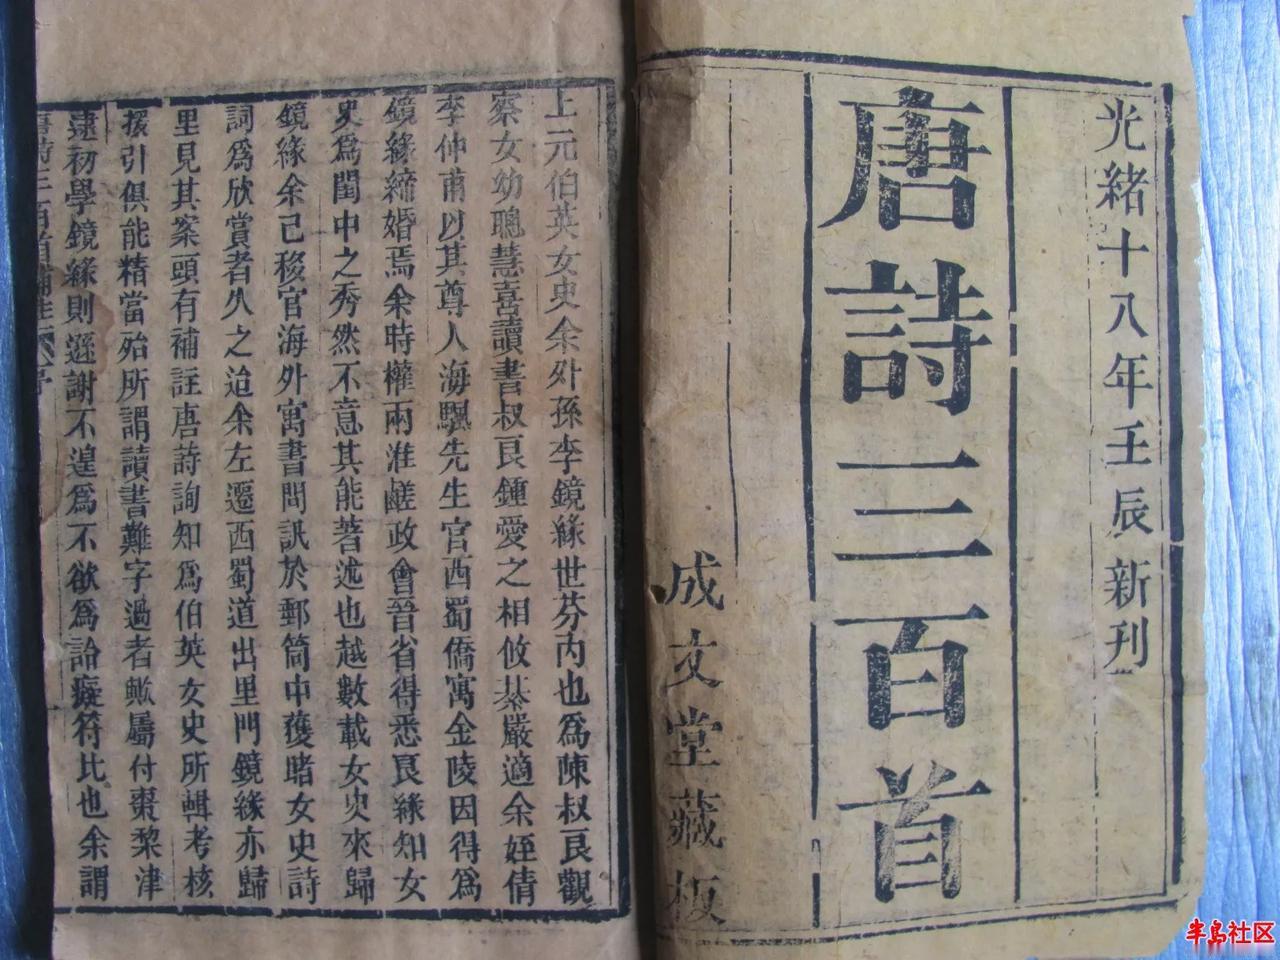 光緒十八年壬辰新刊
唐詩三百首
成文堂藏板
上元伯英女史余外孫李鏡緣世芬內也爲陳叔良觀
察女幼聰慧喜讀書叔良鍾愛之相攸綦嚴適余姪倩
李仲甫以其尊人海颿先生官西蜀僑寓金陵因得爲
鏡緣締婚焉余時權兩淮鹾政會晉省得悉良緣知女
史爲閨中之秀然不意其能著述也越數載女史來歸
鏡緣余已移官海外寓書問訊於郵筒中獲睹女史詩
詞爲欣賞者久之迨余左遷西蜀道出里門鏡緣亦歸
里見其案頭有補註唐詩詢知爲伯英女史所輯考核
援引俱能精當殆所謂讀書難字過者歟屬付棗黎津
逮初學鏡緣則遜謝不遑爲不欲爲詅癡符比也余謂
唐詩三百首補註
半島社区